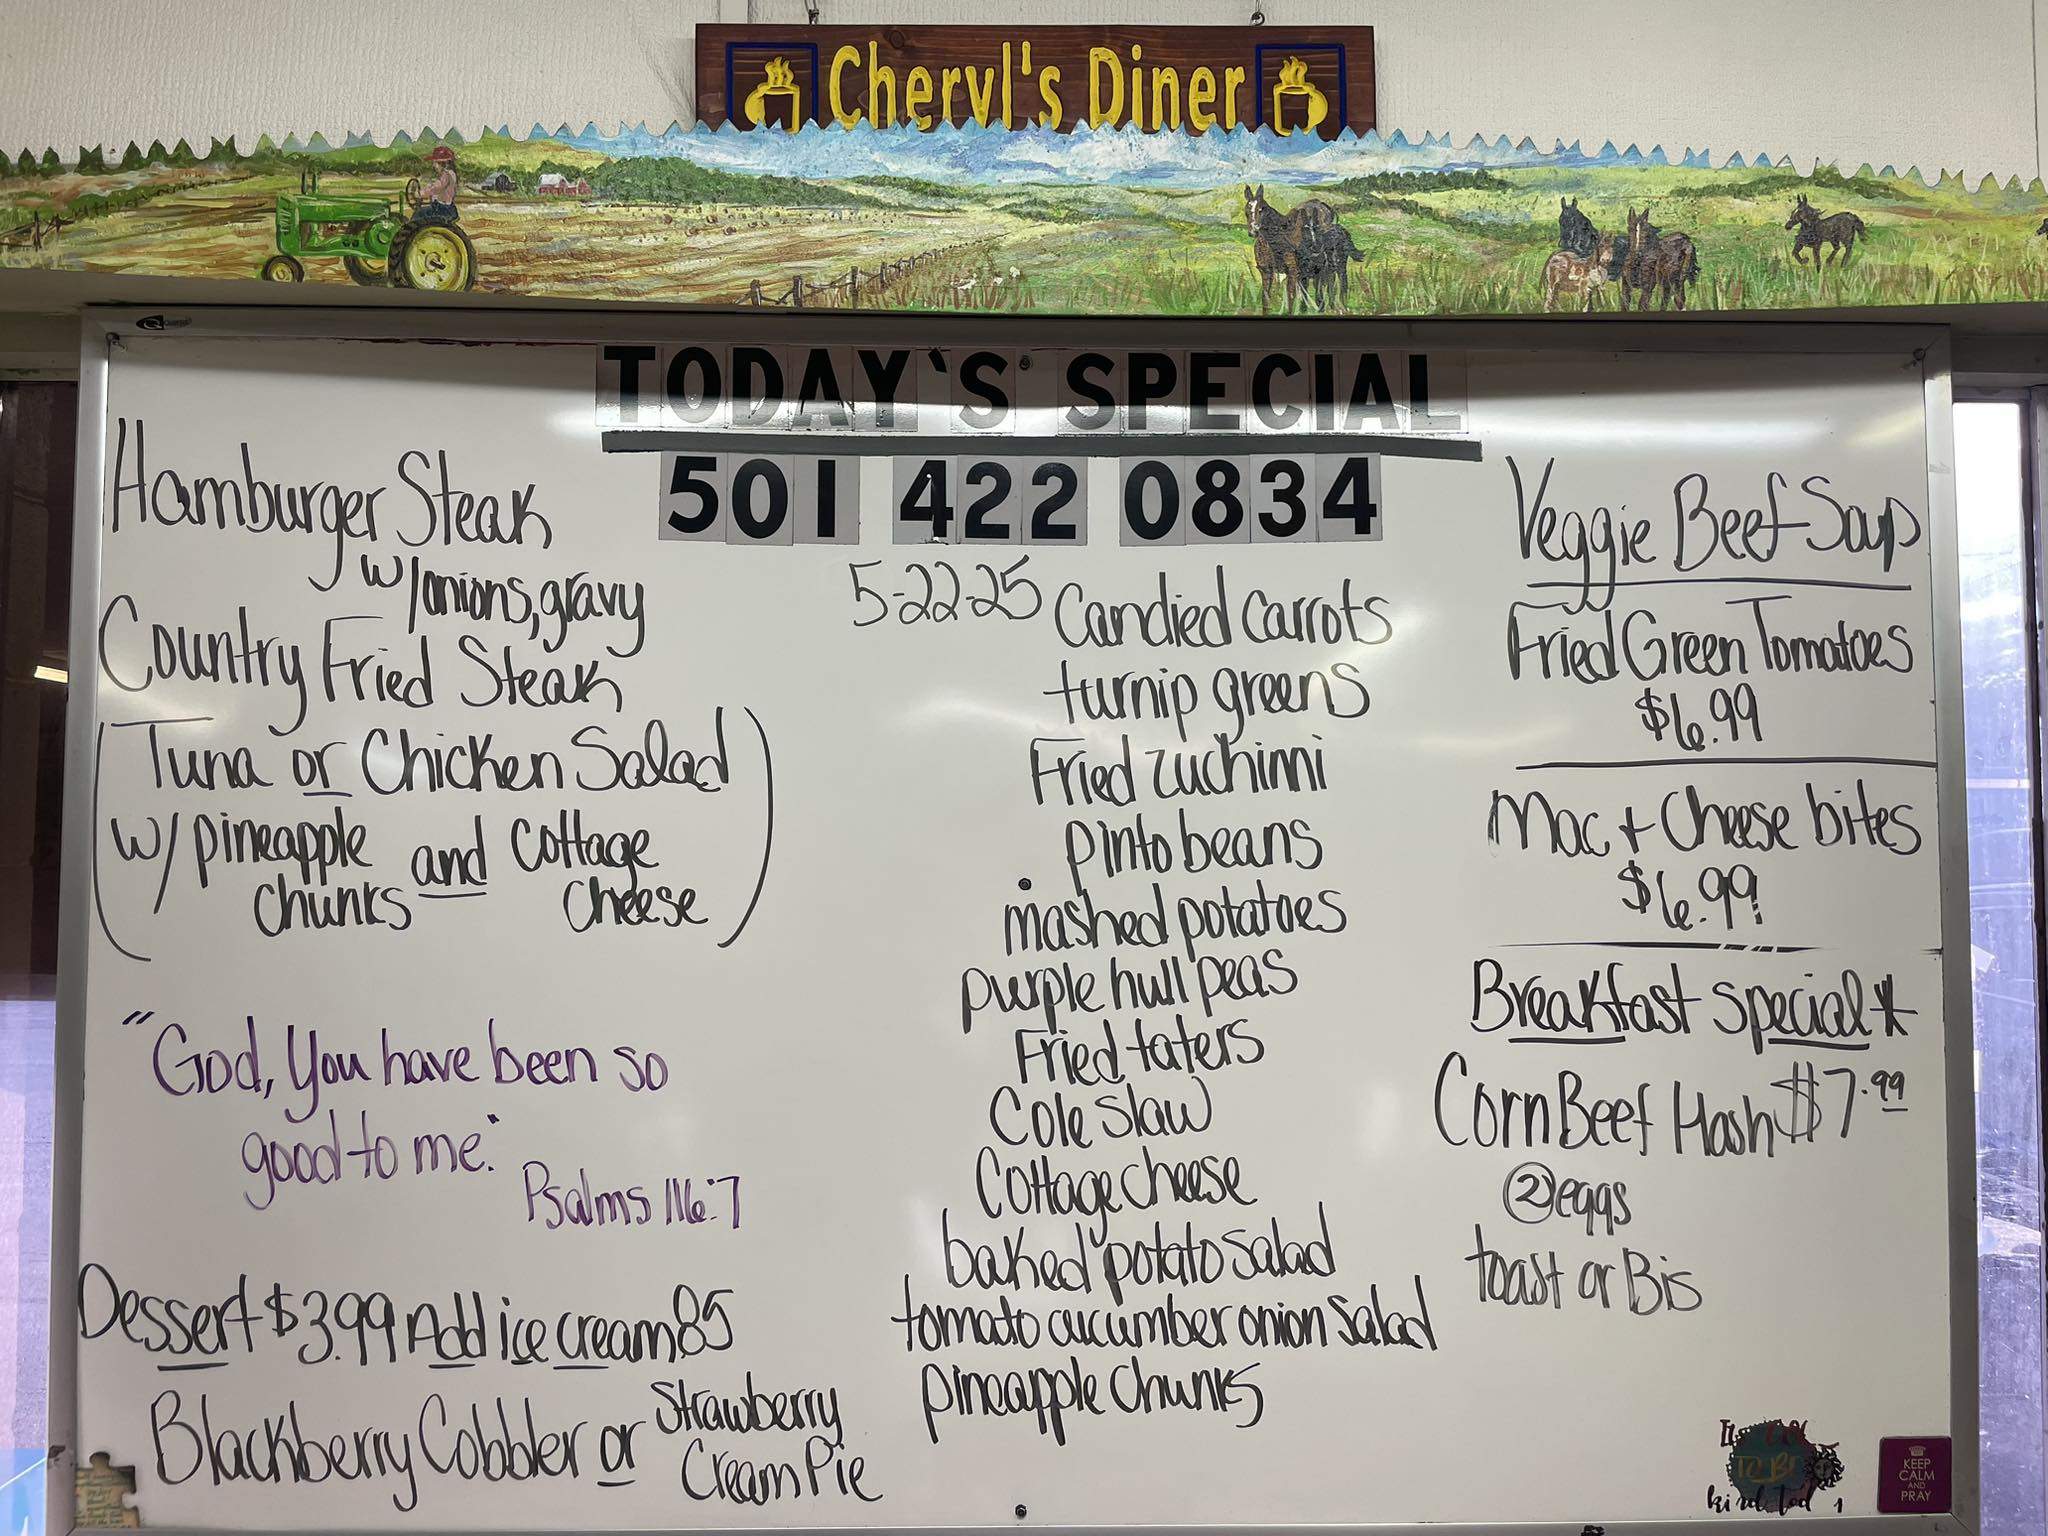 Cheryl's Diner
TODAY'S SPECIAL
501 422 0834
5-22-25
Hamburger Steak
w/onions, gravy
Country Fried Steak
(Tuna or Chicken Salad
w/ pineapple chunks and Cottage Cheese)
"God, You have been so
good to me."
Psalms 116:7
Dessert $3.99 Add ice cream .85
Blackberry Cobbler or Strawberry
Cream Pie
Candied carrots
turnip greens
Fried zuchinni
pinto beans
mashed potatoes
purple hull peas
Fried taters
Cole Slaw
Cottage cheese
baked potato salad
tomato cucumber onion salad
pineapple chunks
Veggie Beef Soup
Fried Green Tomatoes
$6.99
Mac + Cheese bites
$6.99
Breakfast special*
Corn Beef Hash $7.99
② eggs
toast or Bis
TO BE
kind
KEEP
CALM
AND
PRAY